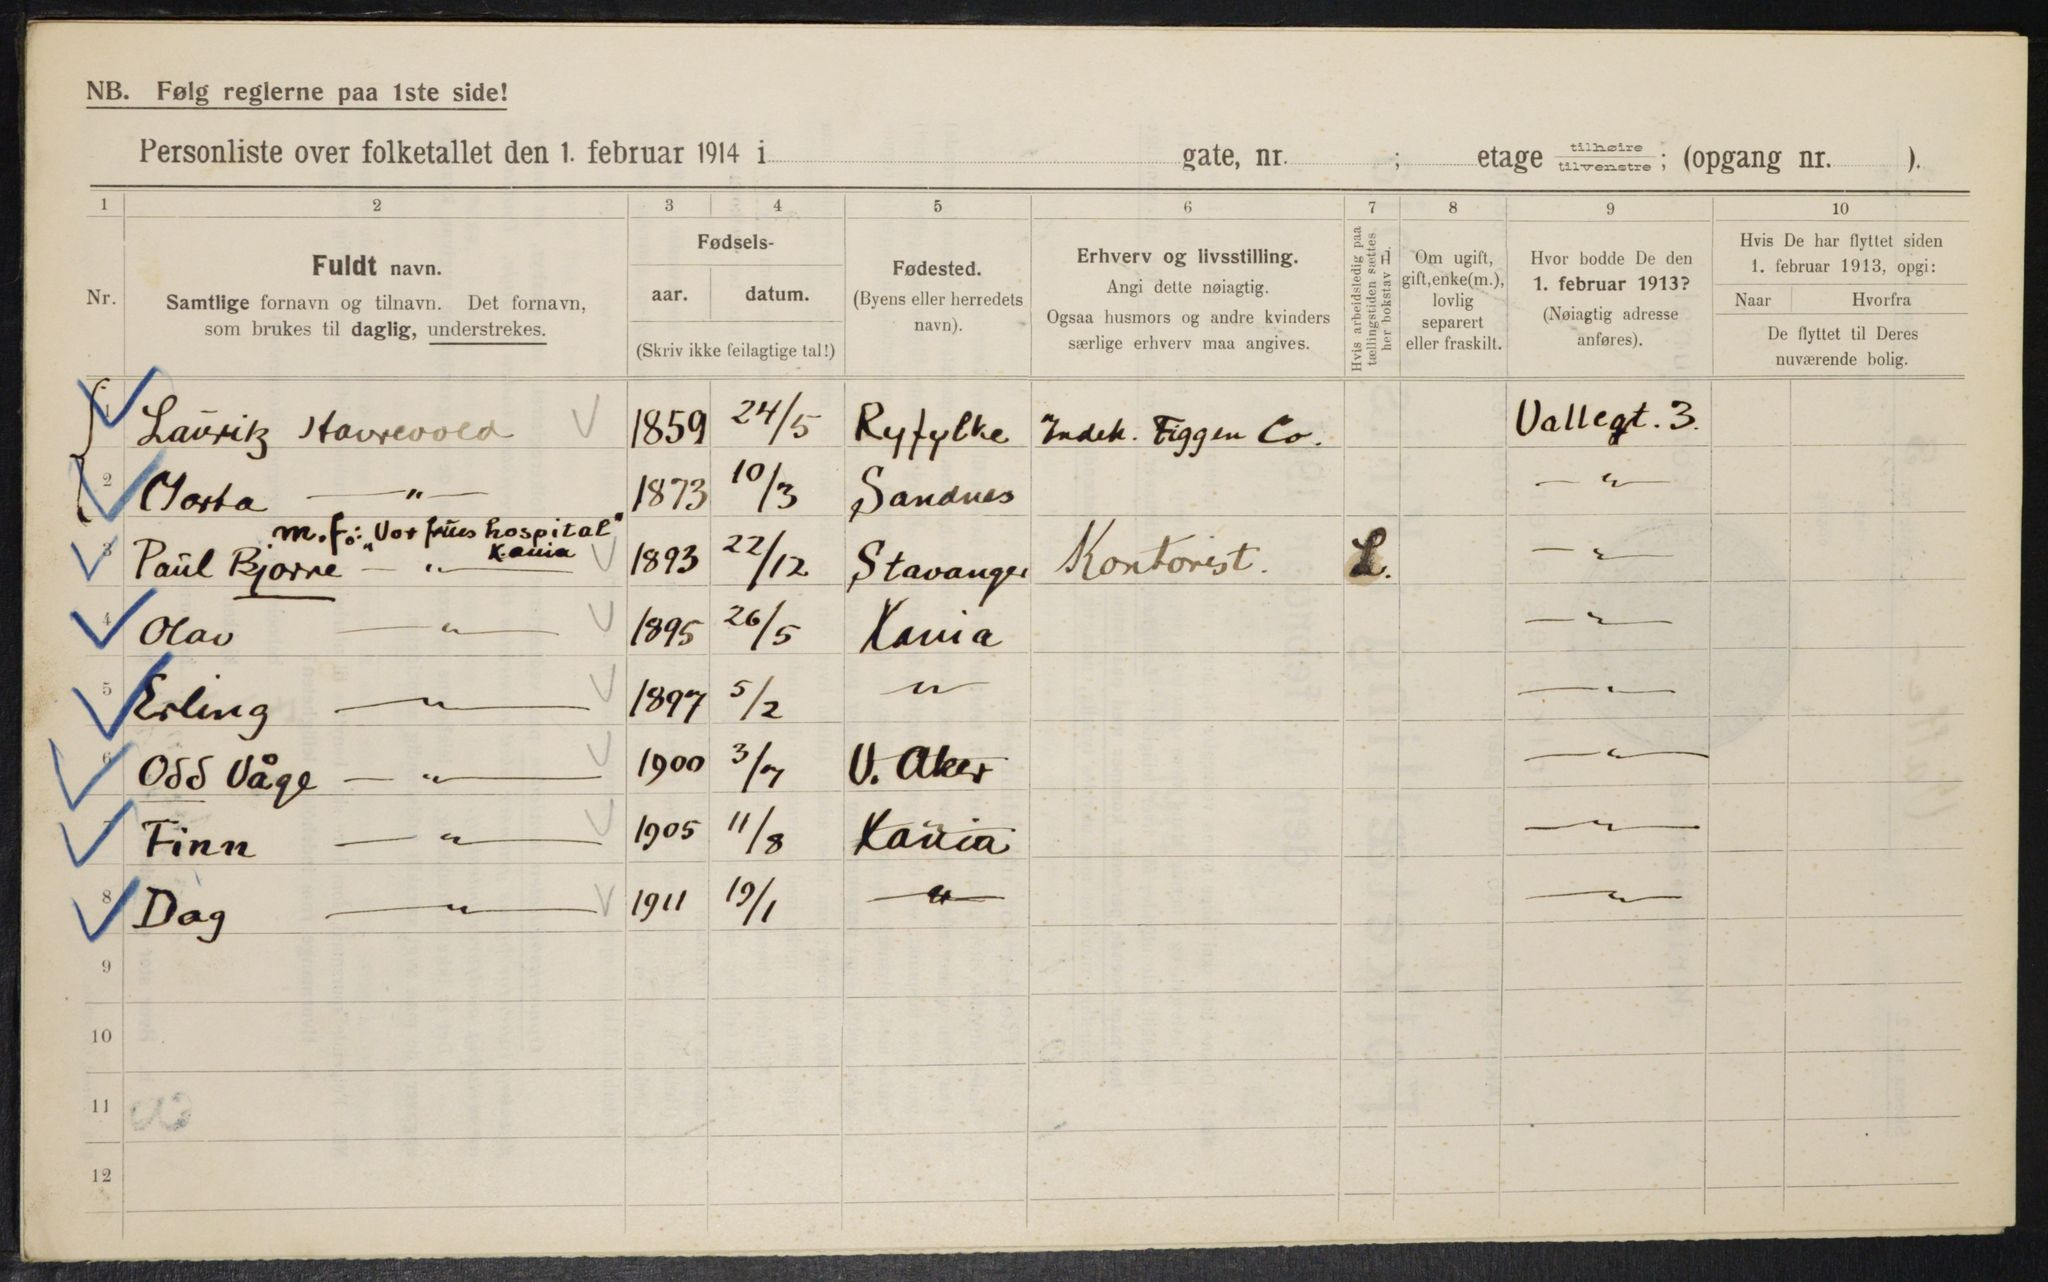 NB. Følg reglerne paa 1ste side!
Personliste over folketallet den 1. februar 1914 i gate, nr. ; etage tilhøire tilvenstre; (opgang nr. ).
1 2 3 4 5 6 7 8 9 10
Nr.
Fuldt navn.
Samtlige fornavn og tilnavn. Det fornavn,
som brukes til daglig, understrekes.
Fødsels-
aar. datum.
(Skriv ikke feilagtige tal!)
Fødested.
(Byens eller herredets
navn).
Erhverv og livsstilling.
Angi dette nøiagtig.
Ogsaa husmors og andre kvinders
særlige erhverv maa angives.
Hvis arbeidsledig paa
tællingstiden sættes
her bokstav L.
Om ugift,
gift, enke(m.),
lovlig
separert
eller fraskilt.
Hvor bodde De den
1. februar 1913?
(Nøiagtig adresse
anføres).
Hvis De har flyttet siden
1. februar 1913, opgi:
Naar Hvorfra
De flyttet til Deres
nuværende bolig.
1 Lauritz Stavrevold 1859 24/5 Ryfylke Figgen Co. Vallegt. 3.
2 Marta — " — 1873 10/3 Sandnes — " —
m.f.: "Vor frues hospital"
Kania
3 Paul Bjarne — " — 1893 22/12 Stavanger Kontorist. L. — " —
4 Olav — " — 1895 26/5 Kania — " —
5 Erling — " — 1897 5/2 — " — — " —
6 Odd Våge — " — 1900 3/7 V. Aker — " —
7 Finn — " — 1905 11/8 Kania — " —
8 Dag — " — 1911 19/1 — " — — " —
9
10
11
12